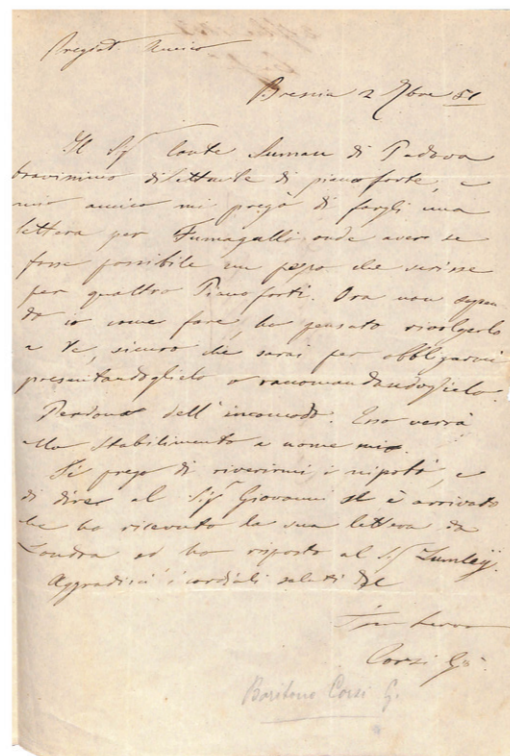 Pregiat. Amico
Brescia 2 9bre 51
Il Sig. Conte Suman di Padova
bravissimo dilettante di pianoforte, e
mio amico mi pregò di fargli una
lettera per Fumagalli onde avere se
fosse possibile un pezzo che scrisse
per quattro Pianoforti. Ora non sapen
do io come fare, ho pensato rivolgerlo
a te, sicuro che sarai per obbligarmi
presentandoglielo o raccomandandoglielo.
Perdona dell'incomodo. Esso verrà
allo Stabilimento a nome mio.
Ti prego di riverirmi i nipoti, e
di dire al Sig. Giovanni se è arrivato
che ho ricevuto la sua lettera da
Londra ed ho risposto al Sig. Lumley.
Aggradisci i cordiali saluti del
Corsi G.
Baritono Corsi G.